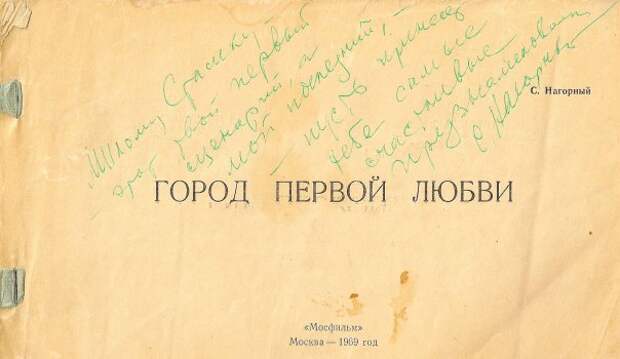 Милому Стасику,
этот твой первый
сценарий и
мой последний,
— пусть принесёт
тебе самые
счастливые
предзнаменования
С. Нагорный
С. Нагорный
ГОРОД ПЕРВОЙ ЛЮБВИ
«Мосфильм»
Москва — 1969 год